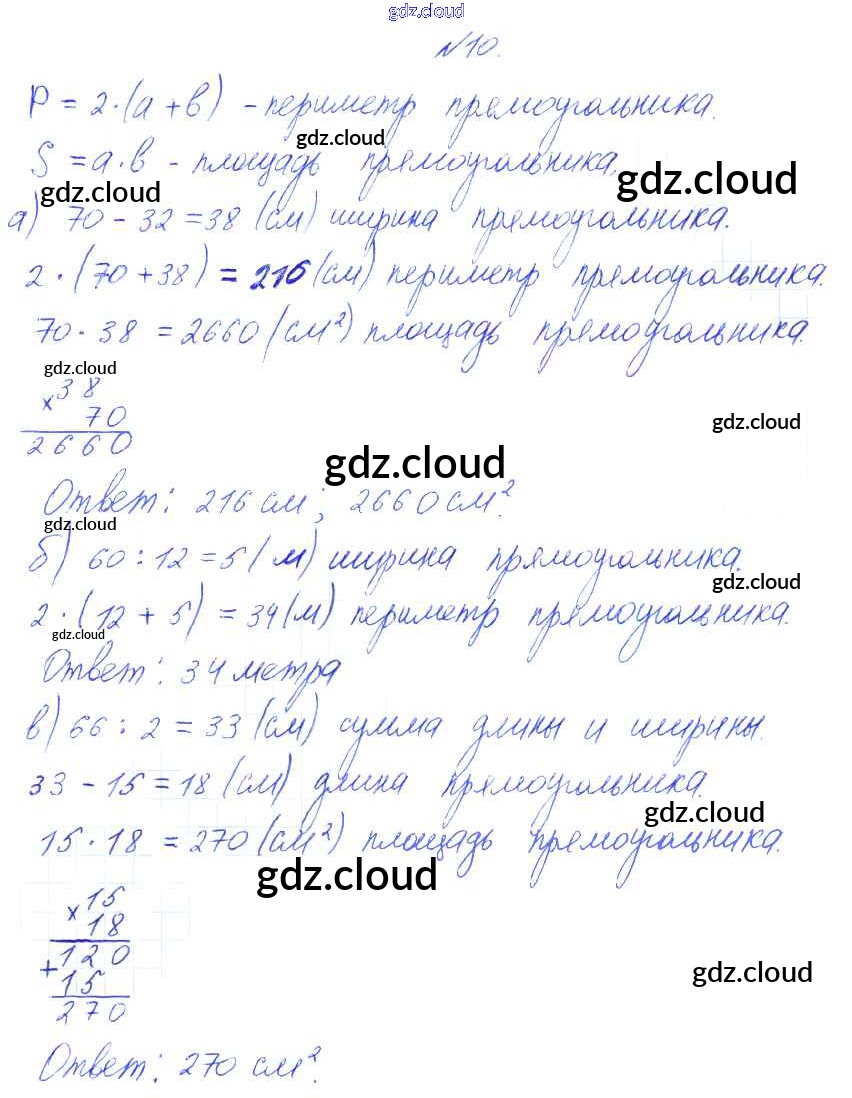 gdz.cloud
№10.
P = 2·(a + b) - периметр премоугольника.
gdz.cloud
S = a·b - площадь прямоугольника,
gdz.cloud
gdz.cloud
а) 70 - 32 = 38 (см) ширина прямоугольника.
2·(70 + 38) = 216 (см) периметр прямоугольника.
70·38 = 2660 (см²) площадь прямоугольника.
gdz.cloud
× 38
70
gdz.cloud
2660
gdz.cloud
Ответ: 216 см; 2660 см².
gdz.cloud
б) 60 : 12 = 5 (м) ширина прямоугольника.
gdz.cloud
2·(12 + 5) = 34 (м) периметр прямоугольника.
gdz.cloud
Ответ: 34 метра
в) 66 : 2 = 33 (см) сумма длины и ширины.
33 - 15 = 18 (см) длина прямоугольника.
gdz.cloud
15·18 = 270 (см²) площадь прямоугольника.
gdz.cloud
× 15
18
120
+ 15
gdz.cloud
270
Ответ: 270 см².